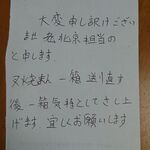 大変申し訳けござい
ませ 私北京担当の
と申します
又 一箱送り直す
後一箱気持としてさし上
げます 宜しくお願いします